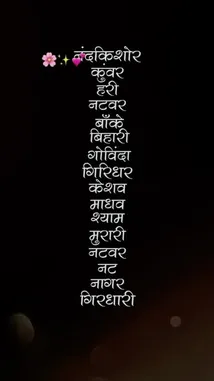 नंदकिशोर
कुंवर
हरी
नटवर
बाँके
बिहारी
गोविंदा
गिरिधर
केशव
माधव
श्याम
मुरारी
नटवर
नट
नागर
गिरधारी